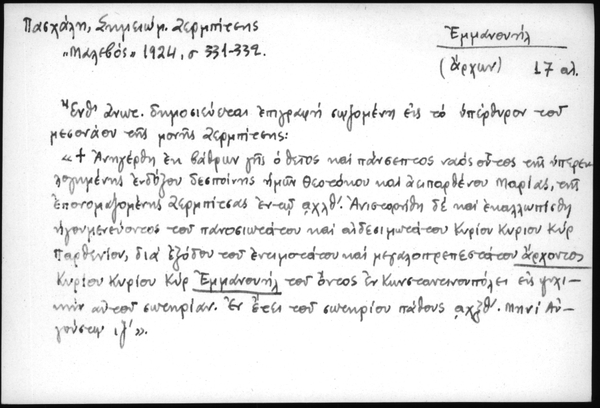 Πασχάλη, Σημειώμ. Ζερμπίτσης
"Μαλεβός" 1924, σ 331-332.
Ἐμμανουήλ
(ἄρχων) 17 αἰ.
Ἔνθ' ἀνωτ. δημοσιεύεται ἐπιγραφή σωζομένη εἰς τό ὑπέρθυρον τοῦ
μεσονάου τῆς μονῆς Ζερμπίτσης:
« + Ἀνηγέρθη ἐκ βάθρων γῆς ὁ θεῖος καί πάνσεπτος ναός οὗτος τῆς ὑπερευ-
λογημένης ἐνδόξου δεσποίνης ἡμῶν Θεοτόκου καί ἀειπαρθένου Μαρίας, τῆς
ἐπονομαζομένης Ζερμπίτσας ἐν ἔτ. αχλθ'. Ἀνιστορήθη δέ καί ἐκαλλωπίσθη
ἡγουμενεύοντος τοῦ πανοσιωτάτου καί αἰδεσιμωτάτου Κυρίου Κυρίου Κύρ
Παρθενίου, διά ἐξόδου τοῦ ἐντιμοτάτου καί μεγαλοπρεπεστάτου ἄρχοντος
Κυρίου Κυρίου Κύρ Ἐμμανουήλ τοῦ ὄντος ἐν Κωνσταντινουπόλει εἰς ψυχι-
κήν αὐτοῦ σωτηρίαν. Ἐν ἔτει τοῦ σωτηρίου πάθους αχξθ'. Μηνί Αὐ-
γούστῳ ιζ' ».